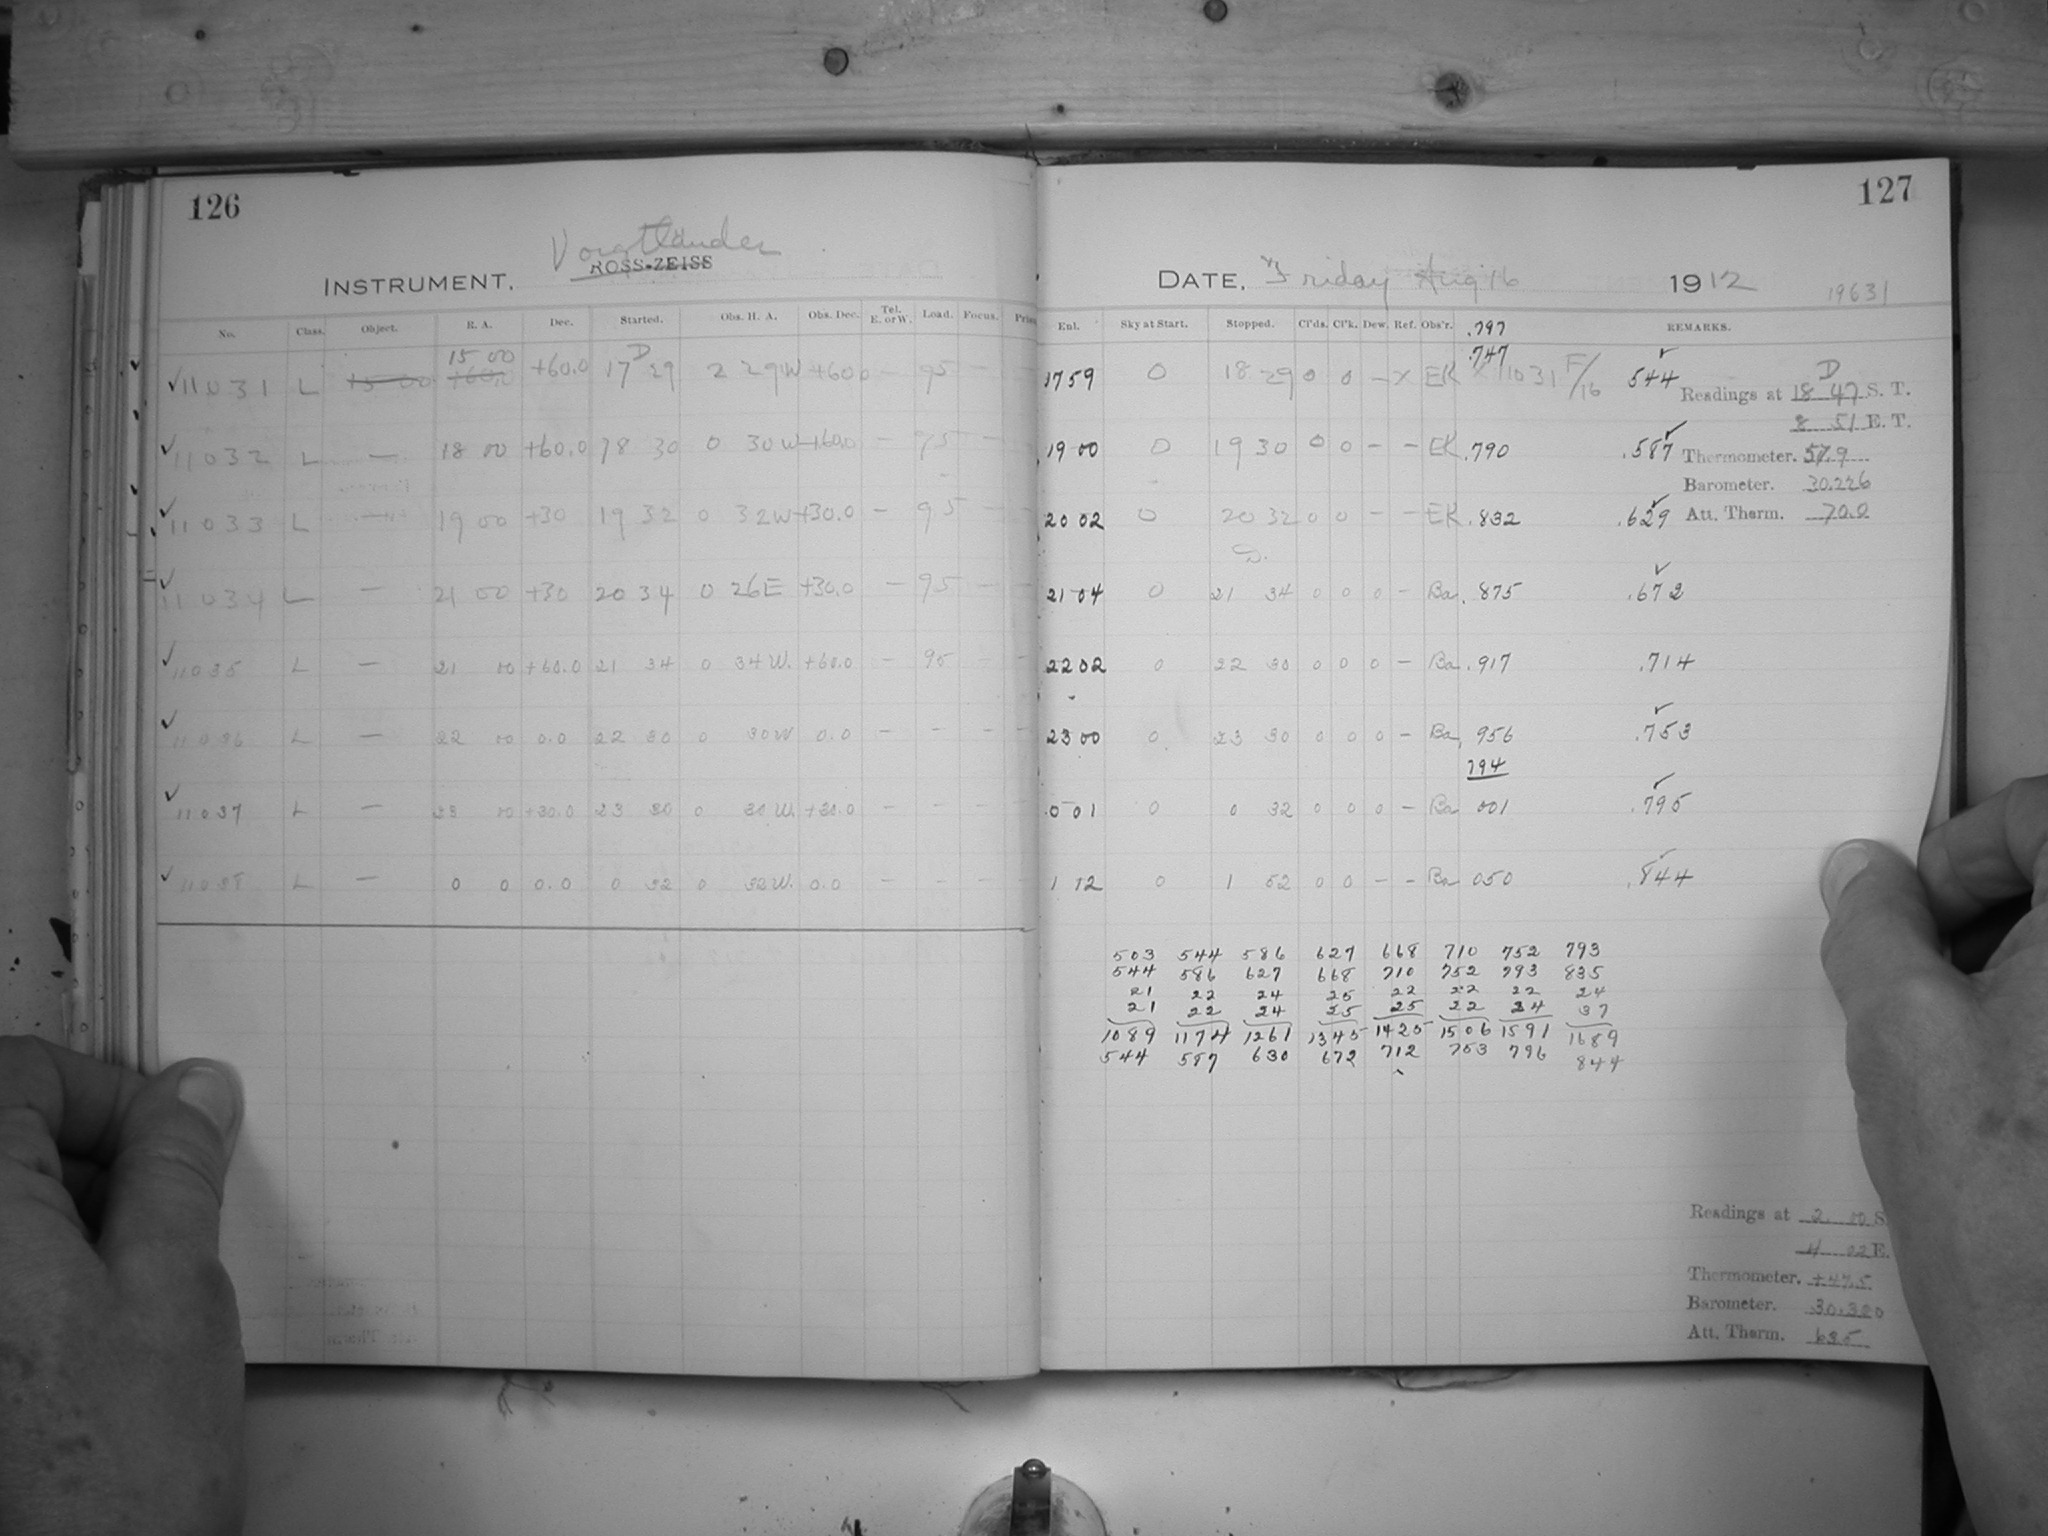 126
Voigtländer
INSTRUMENT. ROSS-ZEISS
No. Class. Object. R. A. Dec. Started. Obs. H. A. Obs. Dec. Tel. E. or W. Load. Focus.
15 00
11031 L 15 00 +60.0 +60.0 17 29 2 29W +60.0 - 95 -
11032 L — 18 00 +60.0 18 30 0 30W +60.0 - 95 -
11033 L — 19 00 +30 19 32 0 32W +30.0 - 95 -
11034 L — 21 00 +30 20 34 0 26E +30.0 - 95 -
11035 L — 21 00 +60.0 21 34 0 34W. +60.0 - 95
11036 L — 22 00 0.0 22 30 0 30W 0.0 - - -
11037 L — 23 00 +30.0 23 30 0 30W. +30.0 - - -
11038 L — 0 0 0.0 0 32 0 32W. 0.0 - - -
127
DATE. Friday Aug 16 1912
19631
Enl. Sky at Start. Stopped. Cl'ds. Cl'k. Dew. Ref. Obs'r. REMARKS.
.797
.747
17 59 0 18 29 0 0 - X EK X 11031 F/16 544
19 00 0 19 30 0 0 - - EK .790 .587
20 02 0 20 32 0 0 - - EK .832 .629
21 04 0 21 34 0 0 0 - Ba. .875 .672
22 02 0 22 30 0 0 0 - Ba .917 .714
23 00 0 23 30 0 0 0 - Ba. 956 .753
794
0 01 0 0 32 0 0 0 - Ba 001 .795
1 12 0 1 52 0 0 - - Ba 050 .844
Readings at 18 47 S. T.
8 51 E. T.
Thermometer. 57.9
Barometer. 30.226
Att. Therm. 70.0
503 544 586 627 668 710 752 793
544 586 627 668 710 752 793 835
21 22 24 25 22 22 22 24
21 22 24 25 25 22 24 37
1089 1174 1261 1345 1425 1506 1591 1689
544 587 630 672 712 753 796 844
Readings at 2. 00 S.
4 02 E.
Thermometer. +47.5
Barometer. 30.320
Att. Therm. 63.5